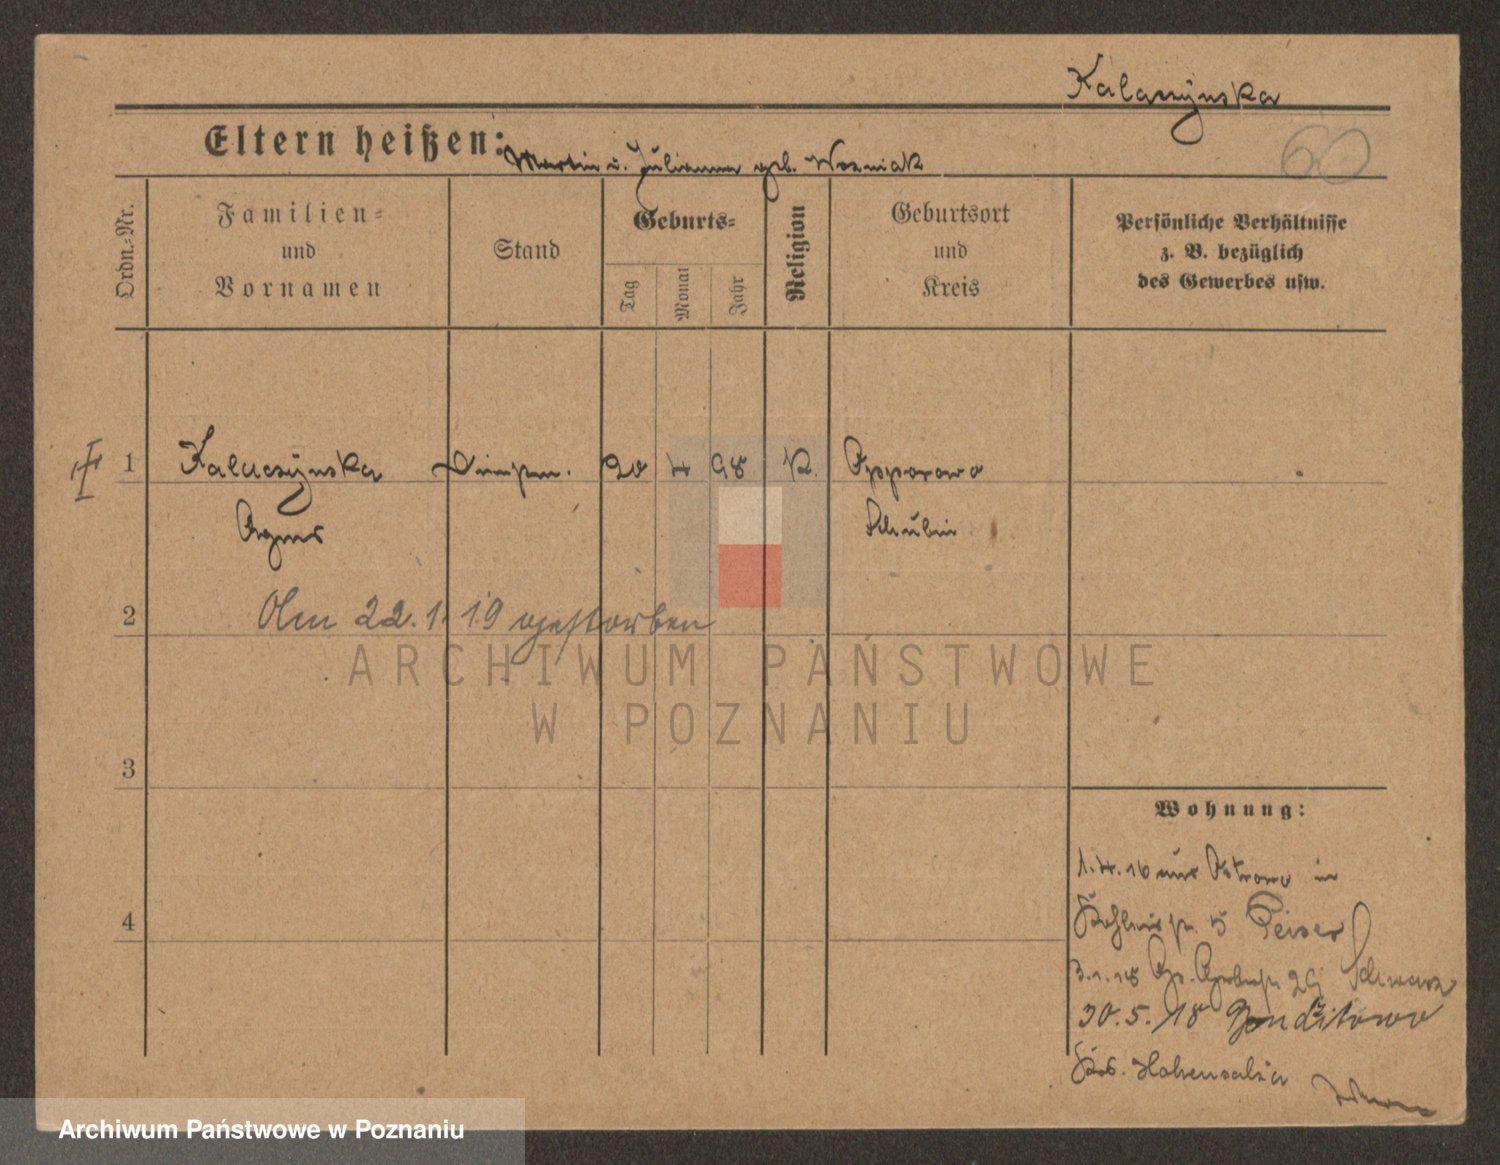 Kalaczynska
60
Eltern heißen: Martin u. Julianna geb. Wozniak
Ordn.-Nr.
Familien- und Vornamen
Stand
Geburts-
Tag
Monat
Jahr
Religion
Geburtsort und Kreis
Persönliche Verhältnisse z. B. bezüglich des Gewerbes usw.
1 Kalaczynska 20 4 98 K.
Agnes Schubin
2 Am 22.1.19 gestorben
ARCHIWUM PAŃSTWOWE
W POZNANIU
3
4
Wohnung:
1.4.16 aus Ostrowo in
5 Peiser
3.1.18 29 Schwarz
30.5.18
Krs. Hohensalza
Archiwum Państwowe w Poznaniu